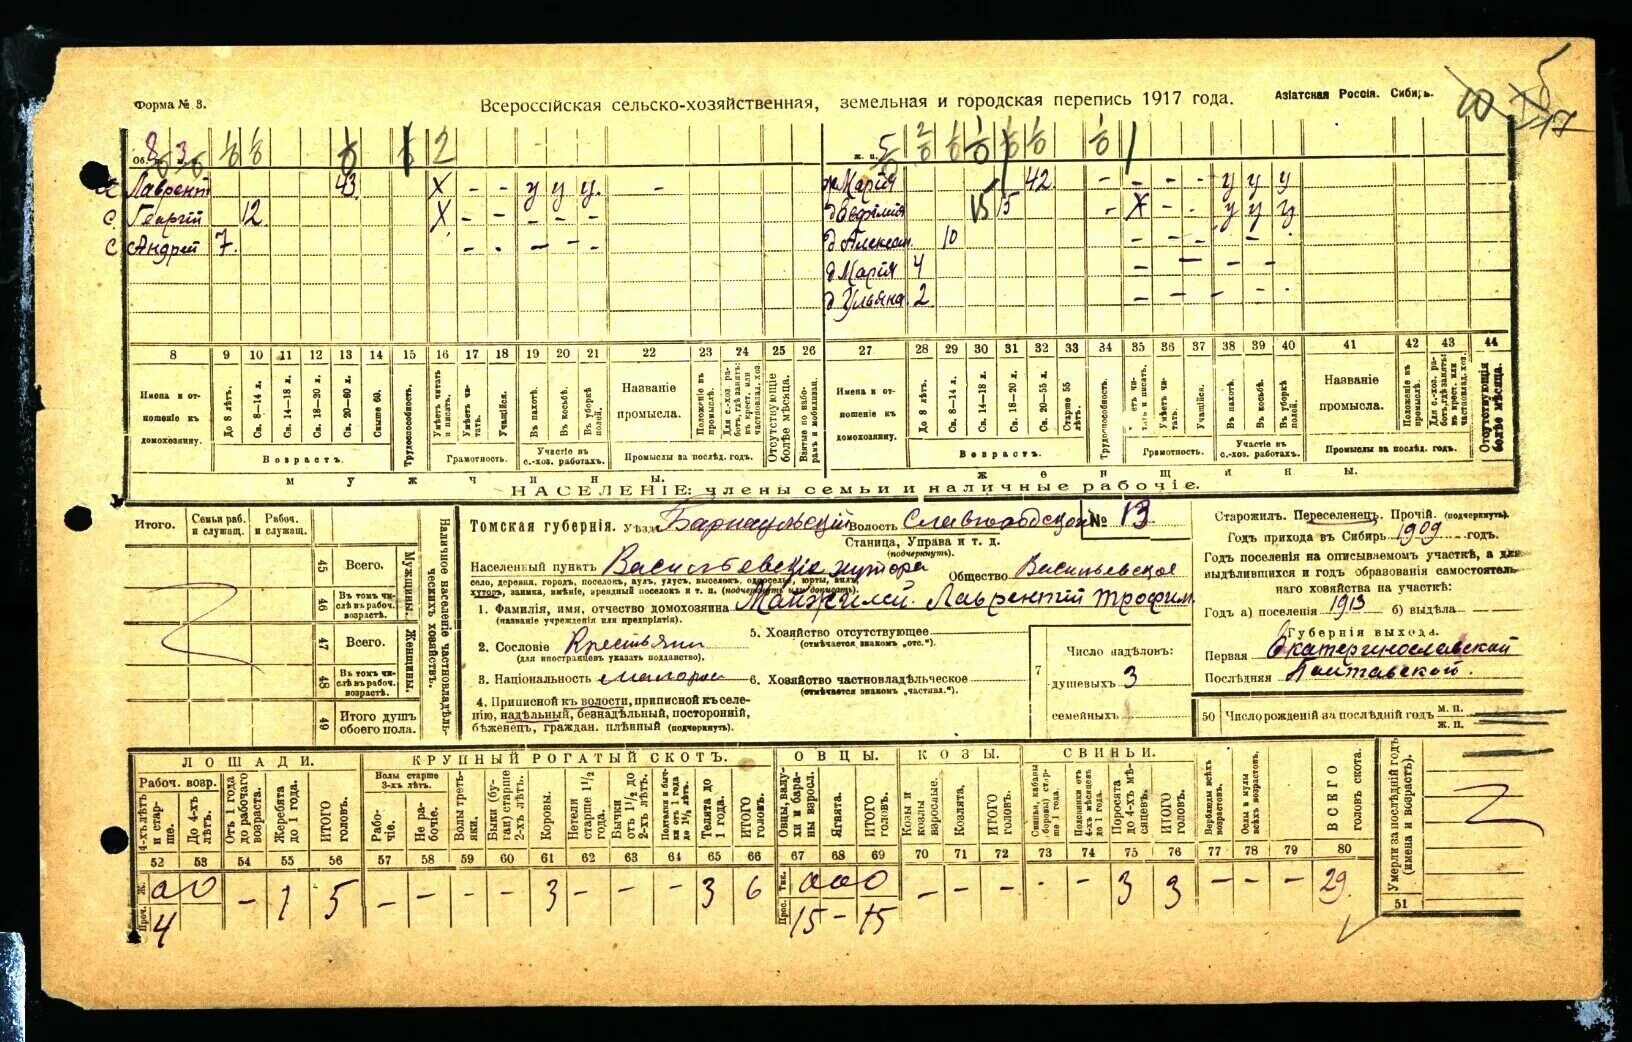 Форма № 3.
Всероссійская сельско-хозяйственная, земельная и городская перепись 1917 года.
Азіатская Россія. Сибирь.
17
Лаврент 43 X - - у у у. -
с. Георгій 12 X - - - - -
с Андрей 7 - - - - -
ж Марія 42 - - - - у у у
д Евфимія 15 - X - - у у у
д Алексан. 10 - - - - - -
д Марія 4 - - - -
д Ульяна 2 - - - - -
8 9 10 11 12 13 14 15 16 17 18 19 20 21 22 23 24 25 26 27 28 29 30 31 32 33 34 35 36 37 38 39 40 41 42 43 44
Имена и отношеніе къ домохозяину.
До 8 лѣтъ.
Св. 8—14 л.
Св. 14—18 л.
Св. 18—20 л.
Св. 20—60 л.
Свыше 60.
Возрастъ.
Трудоспособность.
Умѣетъ читать и писать.
Умѣетъ читать.
Учащійся.
Грамотность.
Въ пахотѣ.
Въ косьбѣ.
Въ уборкѣ полей.
Участіе въ с.-хоз. работахъ.
Названіе промысла.
Положеніе въ промыслѣ.
Для с.-хоз. работ. гдѣ занятъ: въ крест. или частновлад. хоз.
Промыслы за послѣд. годъ.
Отсутствующіе болѣе мѣсяца.
Взятые по наборам и мобилизац.
Имена и отношеніе къ домохозяину.
До 8 лѣтъ.
Св. 8—14 л.
Св. 14—18 л.
Св. 18—20 л.
Св. 20—55 л.
Старше 55 лѣтъ.
Возрастъ.
Трудоспособность.
Умѣетъ читать.
Учащійся.
Грамотность.
Въ пахотѣ.
Въ косьбѣ.
Въ уборкѣ полей.
Участіе въ с.-хоз. работахъ.
Названіе промысла.
Положеніе въ промыслѣ.
Промыслы за послѣд. годъ.
Отсутствующія болѣе мѣсяца.
мужчины.
женщины.
НАСЕЛЕНІЕ: члены семьи и наличные рабочіе.
Итого.
Семьи раб. и служащ.
Рабоч. и служащ.
45 Всего.
46 Въ том числѣ въ рабоч. возрастѣ.
Мужчины.
47 Всего.
48 Въ том числѣ въ рабоч. возрастѣ.
Женщины.
49 Итого душъ обоего пола.
Наличное населеніе частновладѣльческихъ хозяйствъ.
Томская губернія. Уѣздъ Барнаульскій Волость Славгородской № 13
Станица, Управа и т. д.
(подчеркнуть).
Населенный пунктъ Васильевскіе хутора Общество Васильевское
село, деревня, городъ, поселокъ, аулъ, улусъ, выселокъ, односелье, юрты, вилы,
хуторъ, заимка, имѣніе, арендный поселокъ и т. п. (подчеркнуть или дописать).
1. Фамилія, имя, отчество домохозяина Манжилей Лаврентій Трофим.
(названіе учрежденія или предпріятія).
2. Сословіе Крестьяни
(для иностранцевъ указать подданство).
3. Національность малорос
4. Приписной къ волости, приписной къ селенію, надѣльный, безнадѣльный, посторонній,
бѣженецъ, граждан. плѣнный (подчеркнуть).
5. Хозяйство отсутствующее
(отмѣчается знакомъ „отс.“).
6. Хозяйство частновладѣльческое
(отмѣчается знакомъ „частвл.“).
7
Число надѣловъ:
душевыхъ 3
семейныхъ
Старожилъ. Переселенецъ. Прочій. (подчеркнуть).
Годъ прихода въ Сибирь 1909 годъ.
Годъ поселенія на описываемомъ участкѣ, а для
выдѣлившихся и годъ образованія самостоятельнаго хозяйства на участкѣ:
Годъ а) поселенія 1913 б) выдѣла
Губернія выхода.
Первая Екатеринославской
Послѣдняя Полтавской.
50 Число рожденій за послѣдній годъ м. п. ж. п.
51 Умерли за послѣдній годъ (имена и возрастъ).
ЛОШАДИ.
Рабоч. возр.
4-хъ лѣтъ и старше
До 4-хъ лѣтъ.
Отъ 1 года до рабочаго возраста.
Жеребята до 1 года.
ИТОГО головъ.
КРУПНЫЙ РОГАТЫЙ СКОТЪ.
Волы старше 3-хъ лѣтъ.
Рабочіе.
Не рабочіе.
Волы третьяки.
Быки (бугаи) старше 2-хъ лѣтъ.
Коровы.
Нетели старше 1½ года.
Бычки отъ 1½ до 2-хъ лѣтъ.
Полтелки и бычки отъ 1 года до 1½ лѣтъ.
Телята до 1 года.
ИТОГО головъ.
ОВЦЫ.
Овцы, валухи и бараны взросл.
Ягнята.
ИТОГО головъ.
КОЗЫ.
Козы и козлы взрослые.
Козлята.
ИТОГО головъ.
СВИНЬИ.
Свиньи, кабаны (боровы) старше 1 года.
Подсвинки отъ 4-хъ мѣсяцевъ до 1 года.
Поросята до 4-хъ мѣсяцевъ.
ИТОГО головъ.
Верблюды всѣхъ возрастовъ.
Ослы и мулы всѣхъ возрастовъ.
ВСЕГО головъ скота.
52 53 54 55 56 57 58 59 60 61 62 63 64 65 66 67 68 69 70 71 72 73 74 75 76 77 78 79 80
- 1 5 - - - - 3 - - - 3 6 - - - - - 3 3 - - - 29
Проч. 4
Прос. 15 - 15